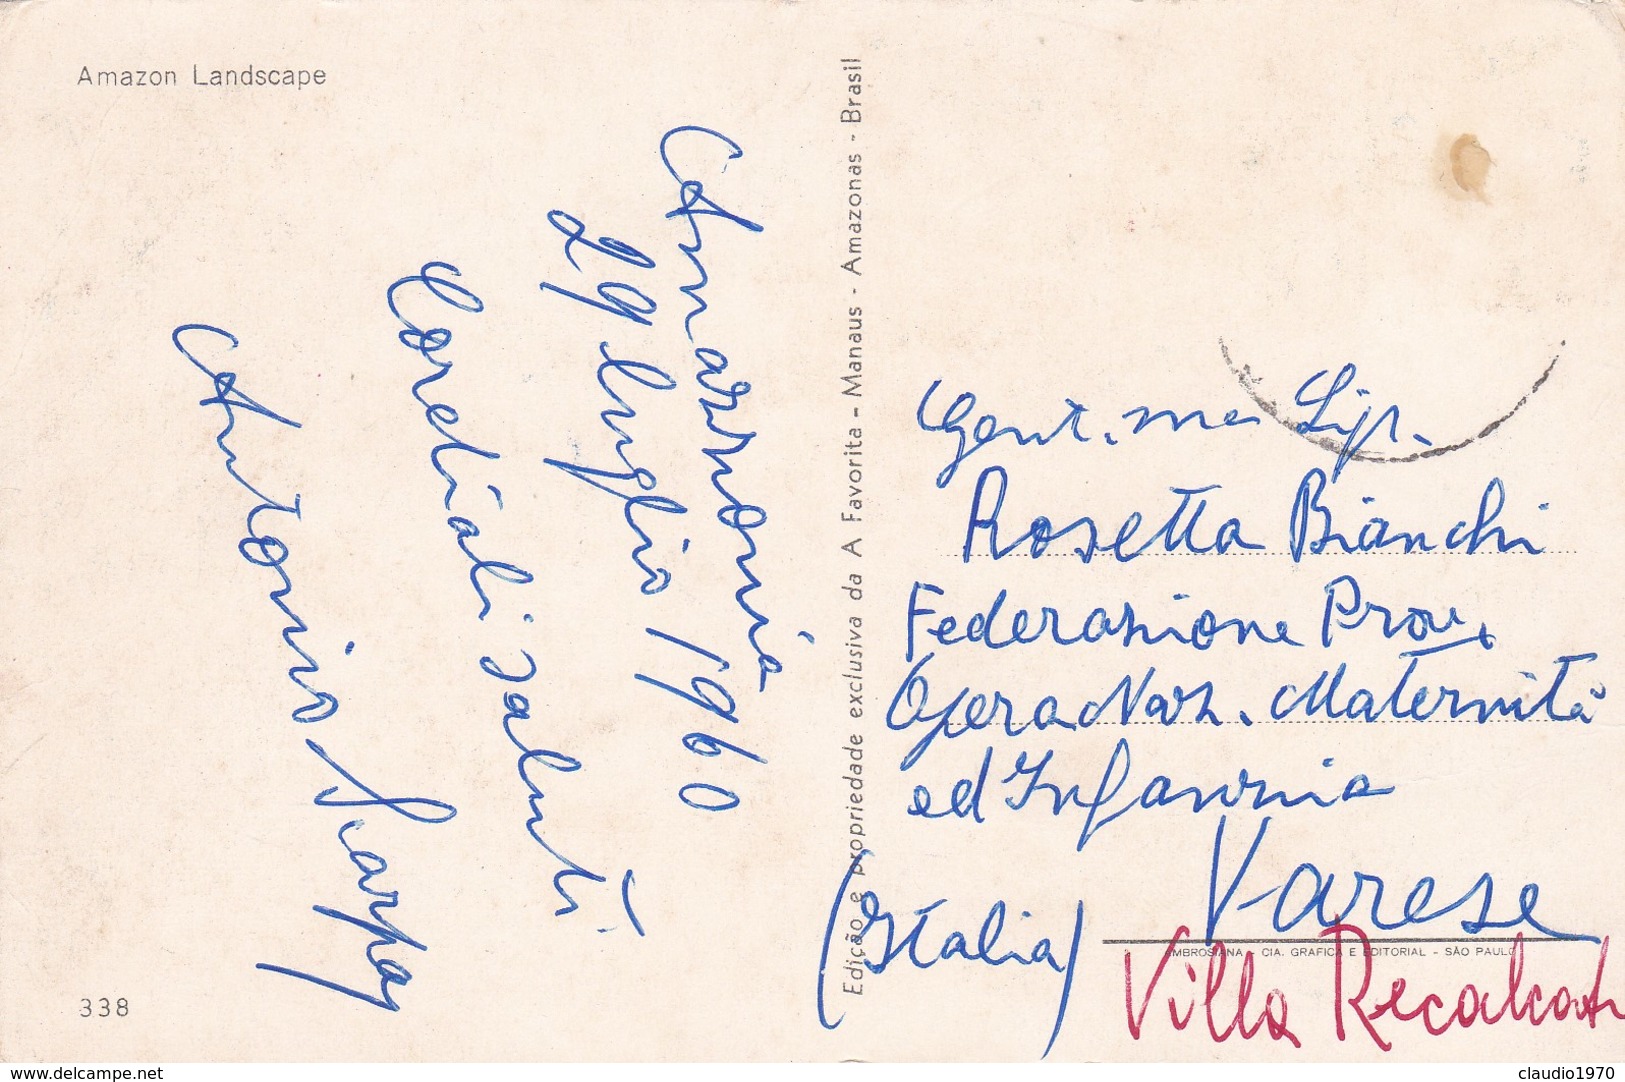 Amazon Landscape
Amazzonia
29 luglio 1960
Cordiali saluti
Antonio Scarpa
338
Edição e propriedade exclusiva da A Favorita - Manaus - Amazonas - Brasil
Gent.ma Sig.
Rosetta Bianchi
Federazione Prov.
Opera Naz. Maternità
ed Infanzia
Varese
(Italia)
AMBROSIANA - CIA. GRAFICA E EDITORIAL - SÃO PAULO
Villa Recalcati
delcampe.net
claudio1970